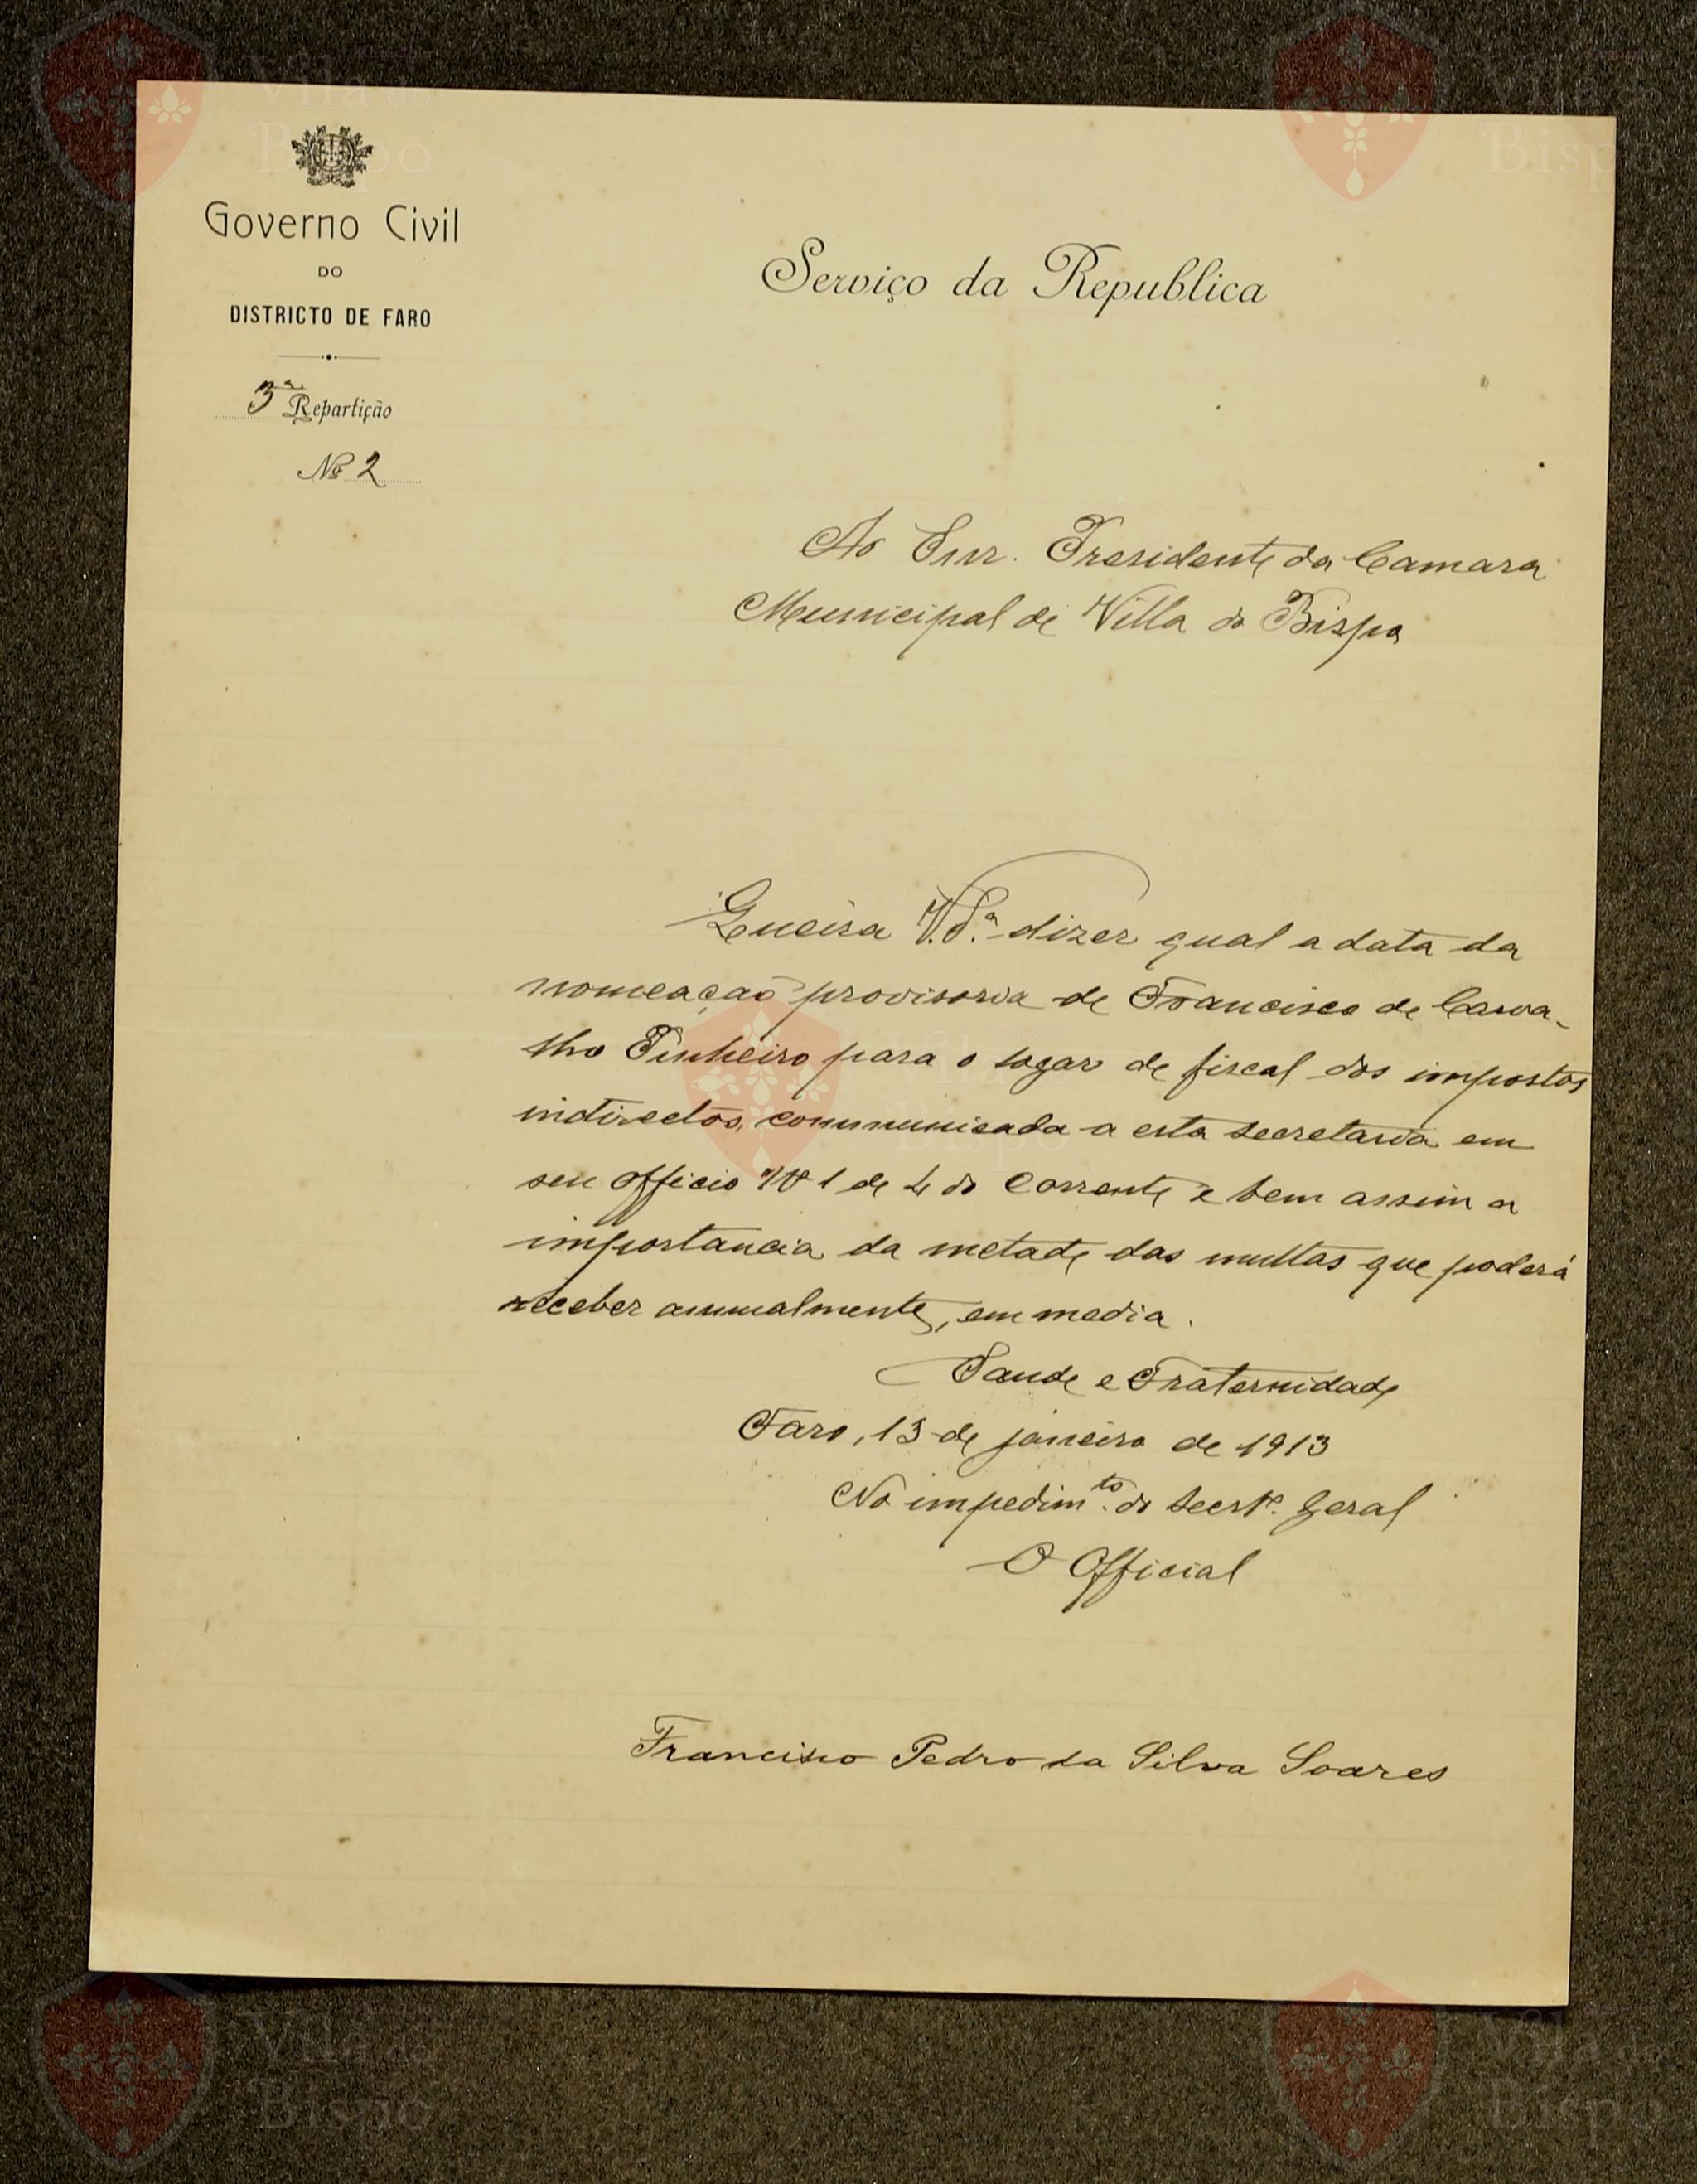 Governo Civil
DO
DISTRICTO DE FARO
3ª Repartição
Nº 2
Serviço da Republica
Ao Snr. Presidente da Camara
Municipal de Villa do Bispo
Queira V. S.ª dizer qual a data da
nomeação provisoria de Francisco de Carva-
lho Pinheiro para o logar de fiscal dos impostos
indirectos, communicada a esta secretaria em
seu officio Nº 1 de 4 do corrente e bem assim a
importancia da metade das multas que poderá
receber annualmente, em media.
Saude e Fraternidade
Faro, 13 de janeiro de 1913
No impedim.to do Secrt.º Geral
O Official
Francisco Pedro da Silva Soares
Vila do
Bispo